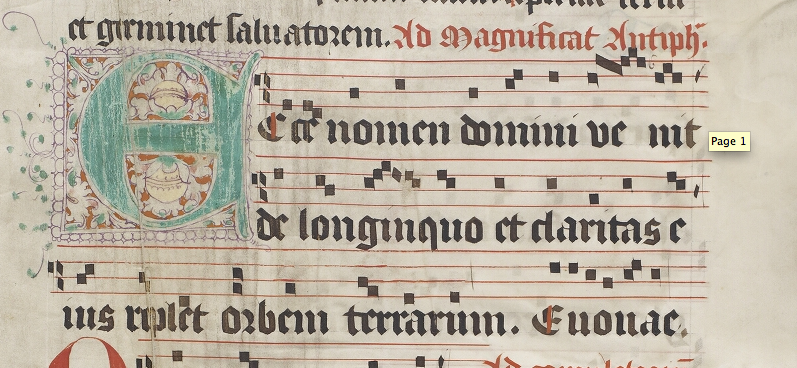 et germinet saluatorem. Ad Magnificat Antiph.
Ecce nomen domini ve nit
Page 1
de longinquo et claritas e
ius replet orbem terrarum. Euouae.